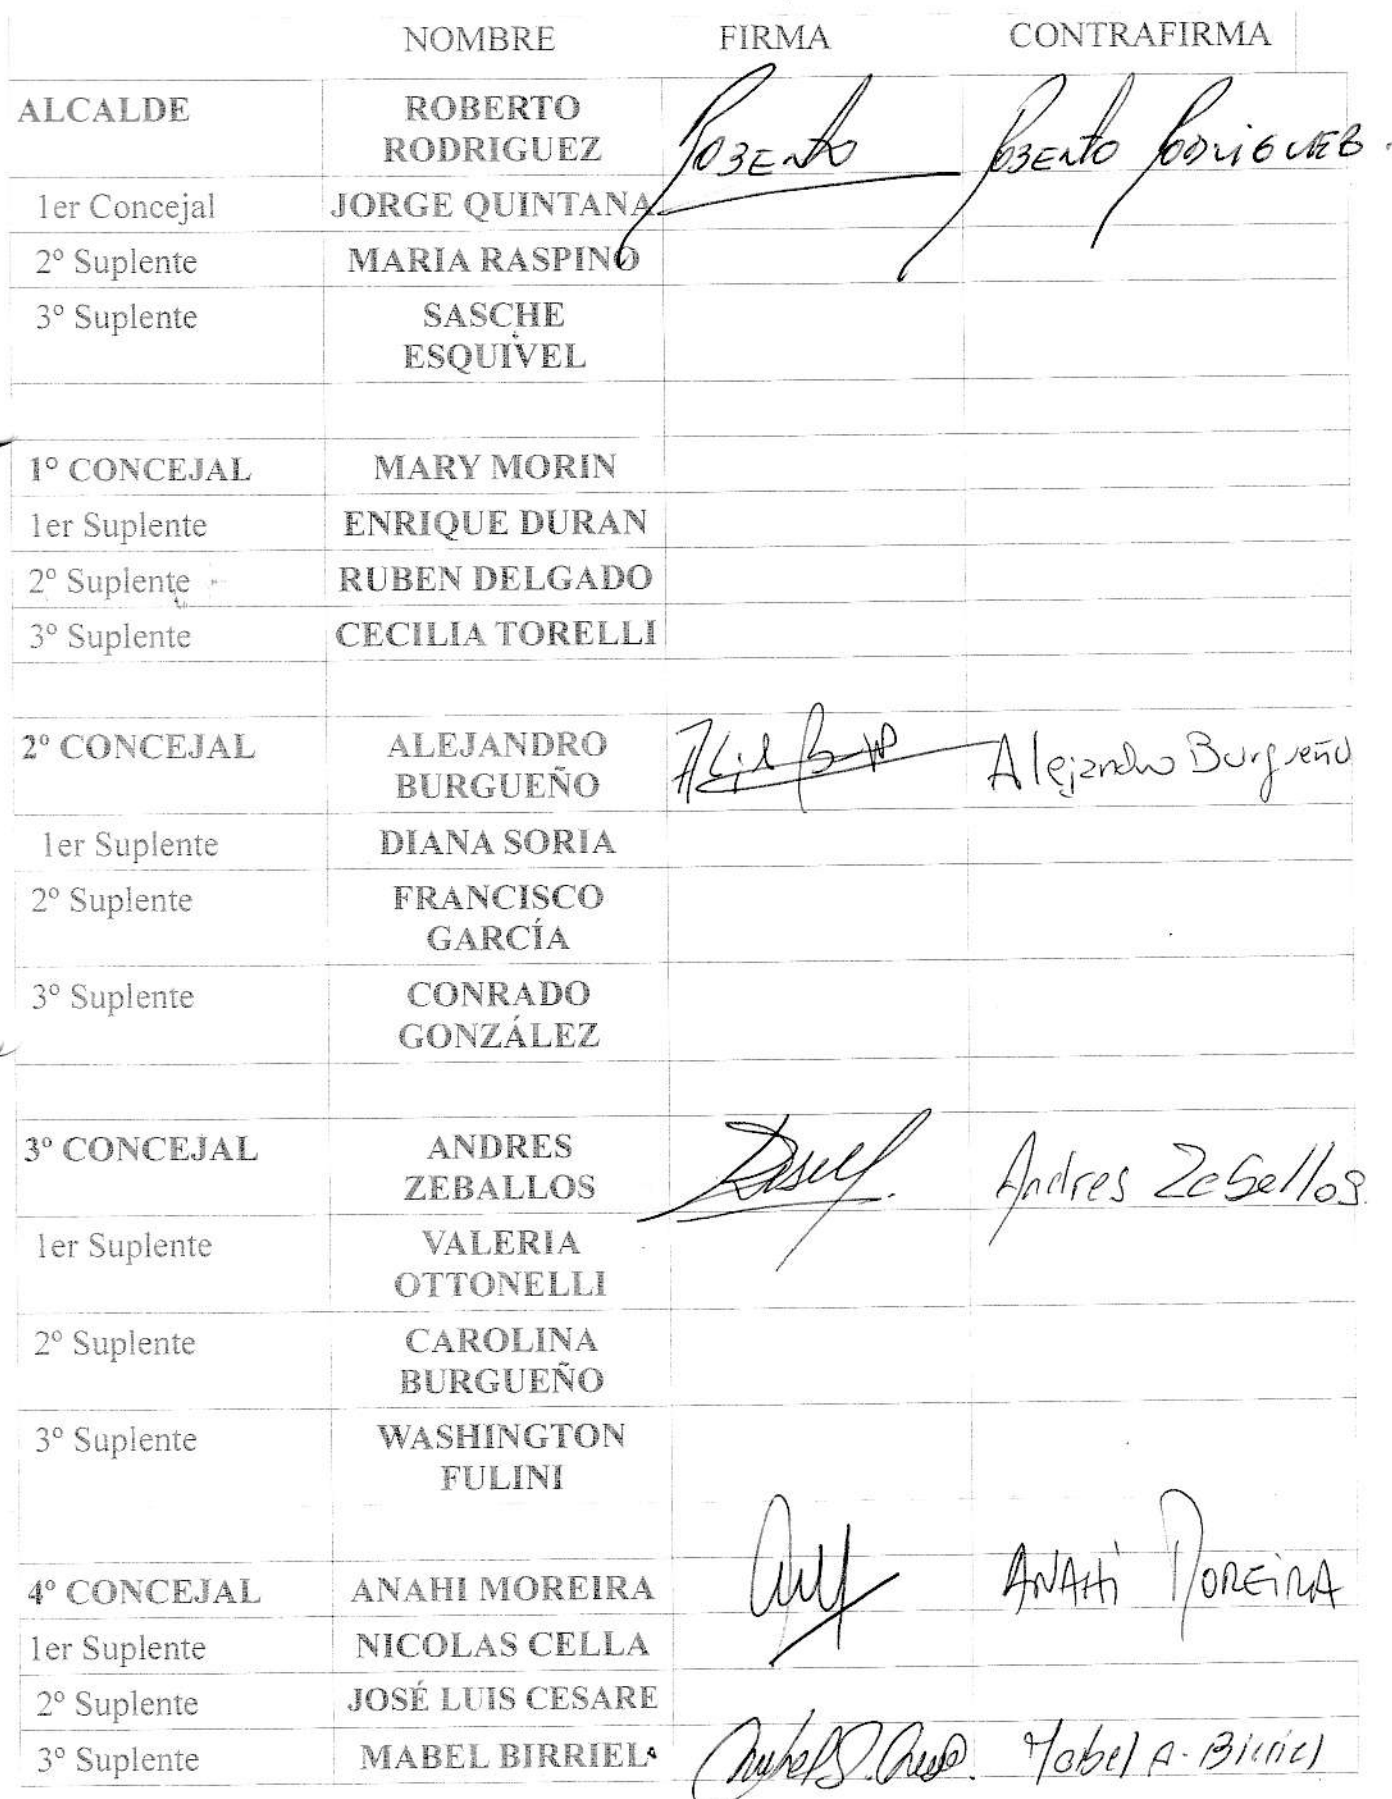 NOMBRE FIRMA CONTRAFIRMA
ALCALDE ROBERTO RODRIGUEZ Roberto Roberto Rodriguez.
1er Concejal JORGE QUINTANA
2º Suplente MARIA RASPINO
3º Suplente SASCHE ESQUIVEL
1º CONCEJAL MARY MORIN
1er Suplente ENRIQUE DURAN
2º Suplente RUBEN DELGADO
3º Suplente CECILIA TORELLI
2º CONCEJAL ALEJANDRO BURGUEÑO Alejandro Burgueño
1er Suplente DIANA SORIA
2º Suplente FRANCISCO GARCÍA
3º Suplente CONRADO GONZÁLEZ
3º CONCEJAL ANDRES ZEBALLOS Andres Zeballos.
1er Suplente VALERIA OTTONELLI
2º Suplente CAROLINA BURGUEÑO
3º Suplente WASHINGTON FULINI
4º CONCEJAL ANAHI MOREIRA ANAHÍ MOREIRA
1er Suplente NICOLAS CELLA
2º Suplente JOSÉ LUIS CESARE
3º Suplente MABEL BIRRIEL Mabel A. Birriel